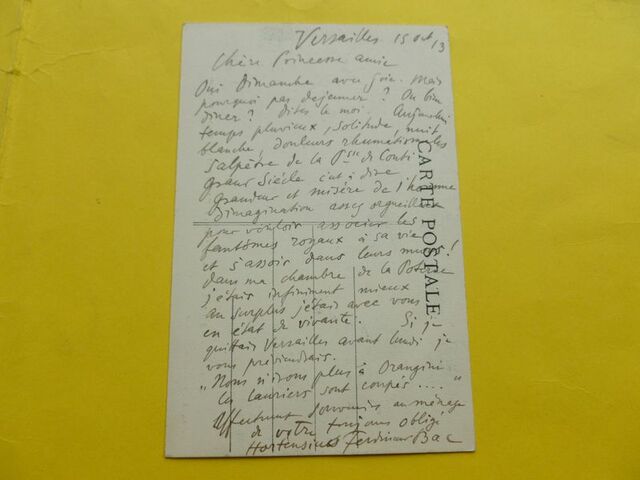 Versailles 15 oct 13
Chère Princesse amie
Oui Dimanche avec joie. Mais
pourquoi pas dejeuner ? Ou bien
diner ? Dites le moi. Aujourd'hui
temps pluvieux, solitude, nuit
blanche, douleurs rhumatismales
Salpêtre de la Psse de Conti
Grand Siècle c'est à dire
Grandeur et misère de l'homme
D'imagination assez orgueilleux
pour vouloir associer les
fantômes royaux à sa vie
et s'assoir dans leurs murs !
dans ma chambre de la
j'étais infiniment mieux
au surplus j'étais avec vous
en état de vivante. Si je
quittais Versailles avant lundi je
vous préviendrais.
"Nous n'irons plus à
Les lauriers sont coupés .... "
Affectueux souvenirs au ménage
de votre toujours obligé
Hortensius Ferdinand Bac
CARTE POSTALE